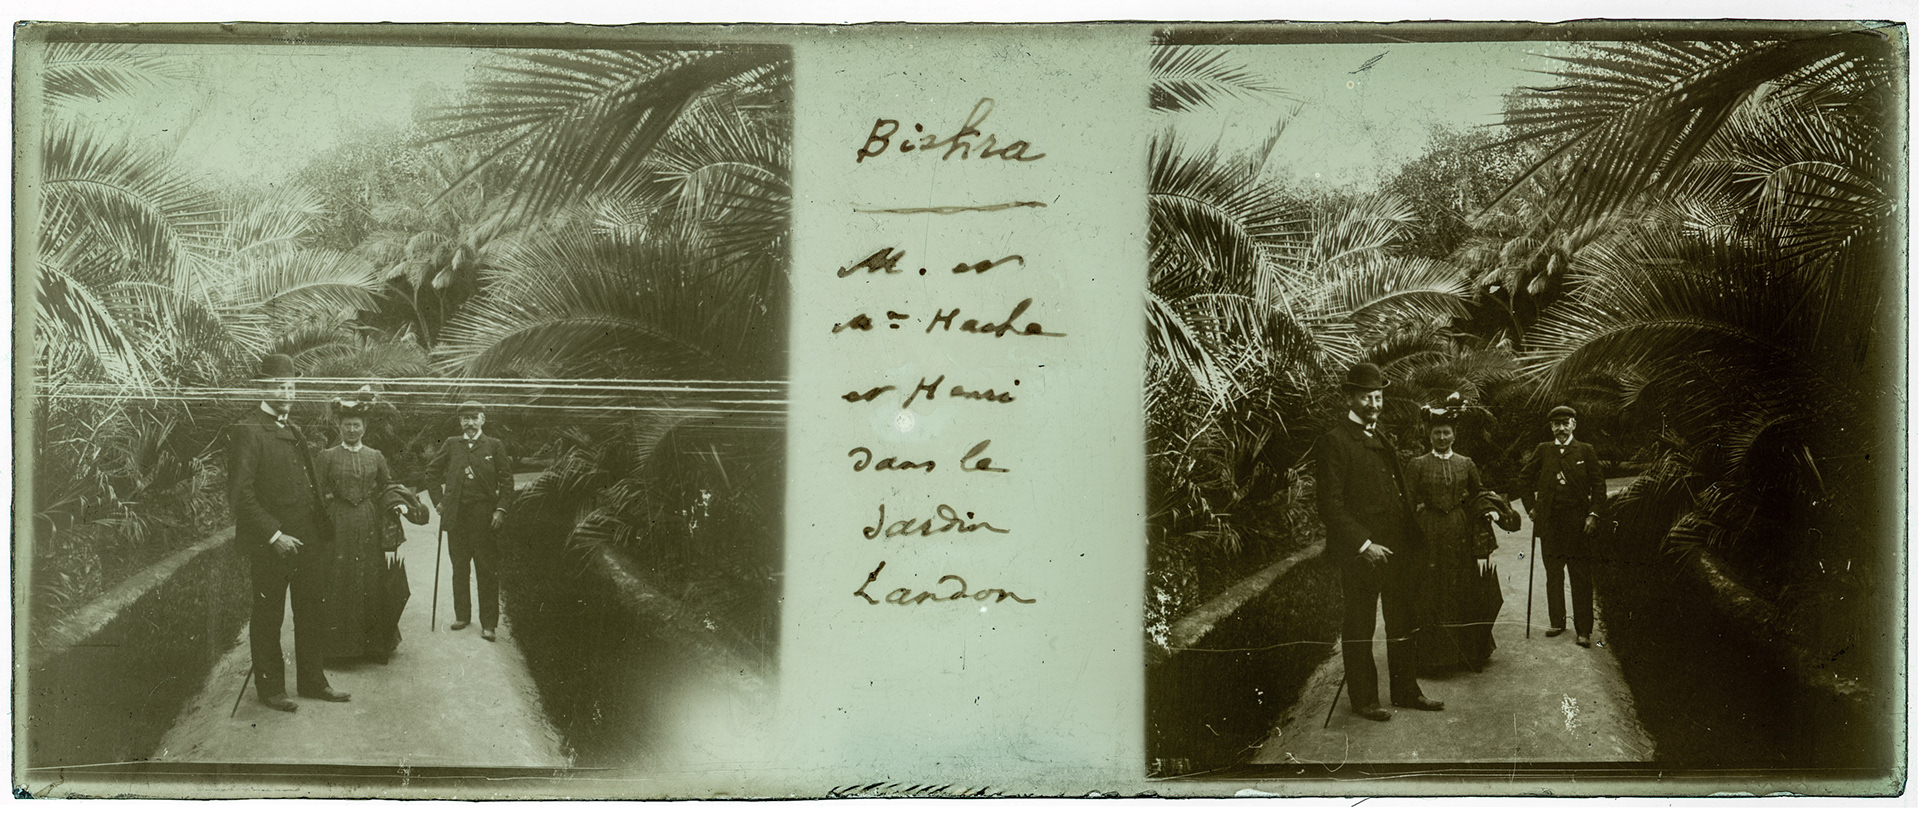 Biskra
M. et
Mme Hache
et Henri
dans le
Jardin
Landon